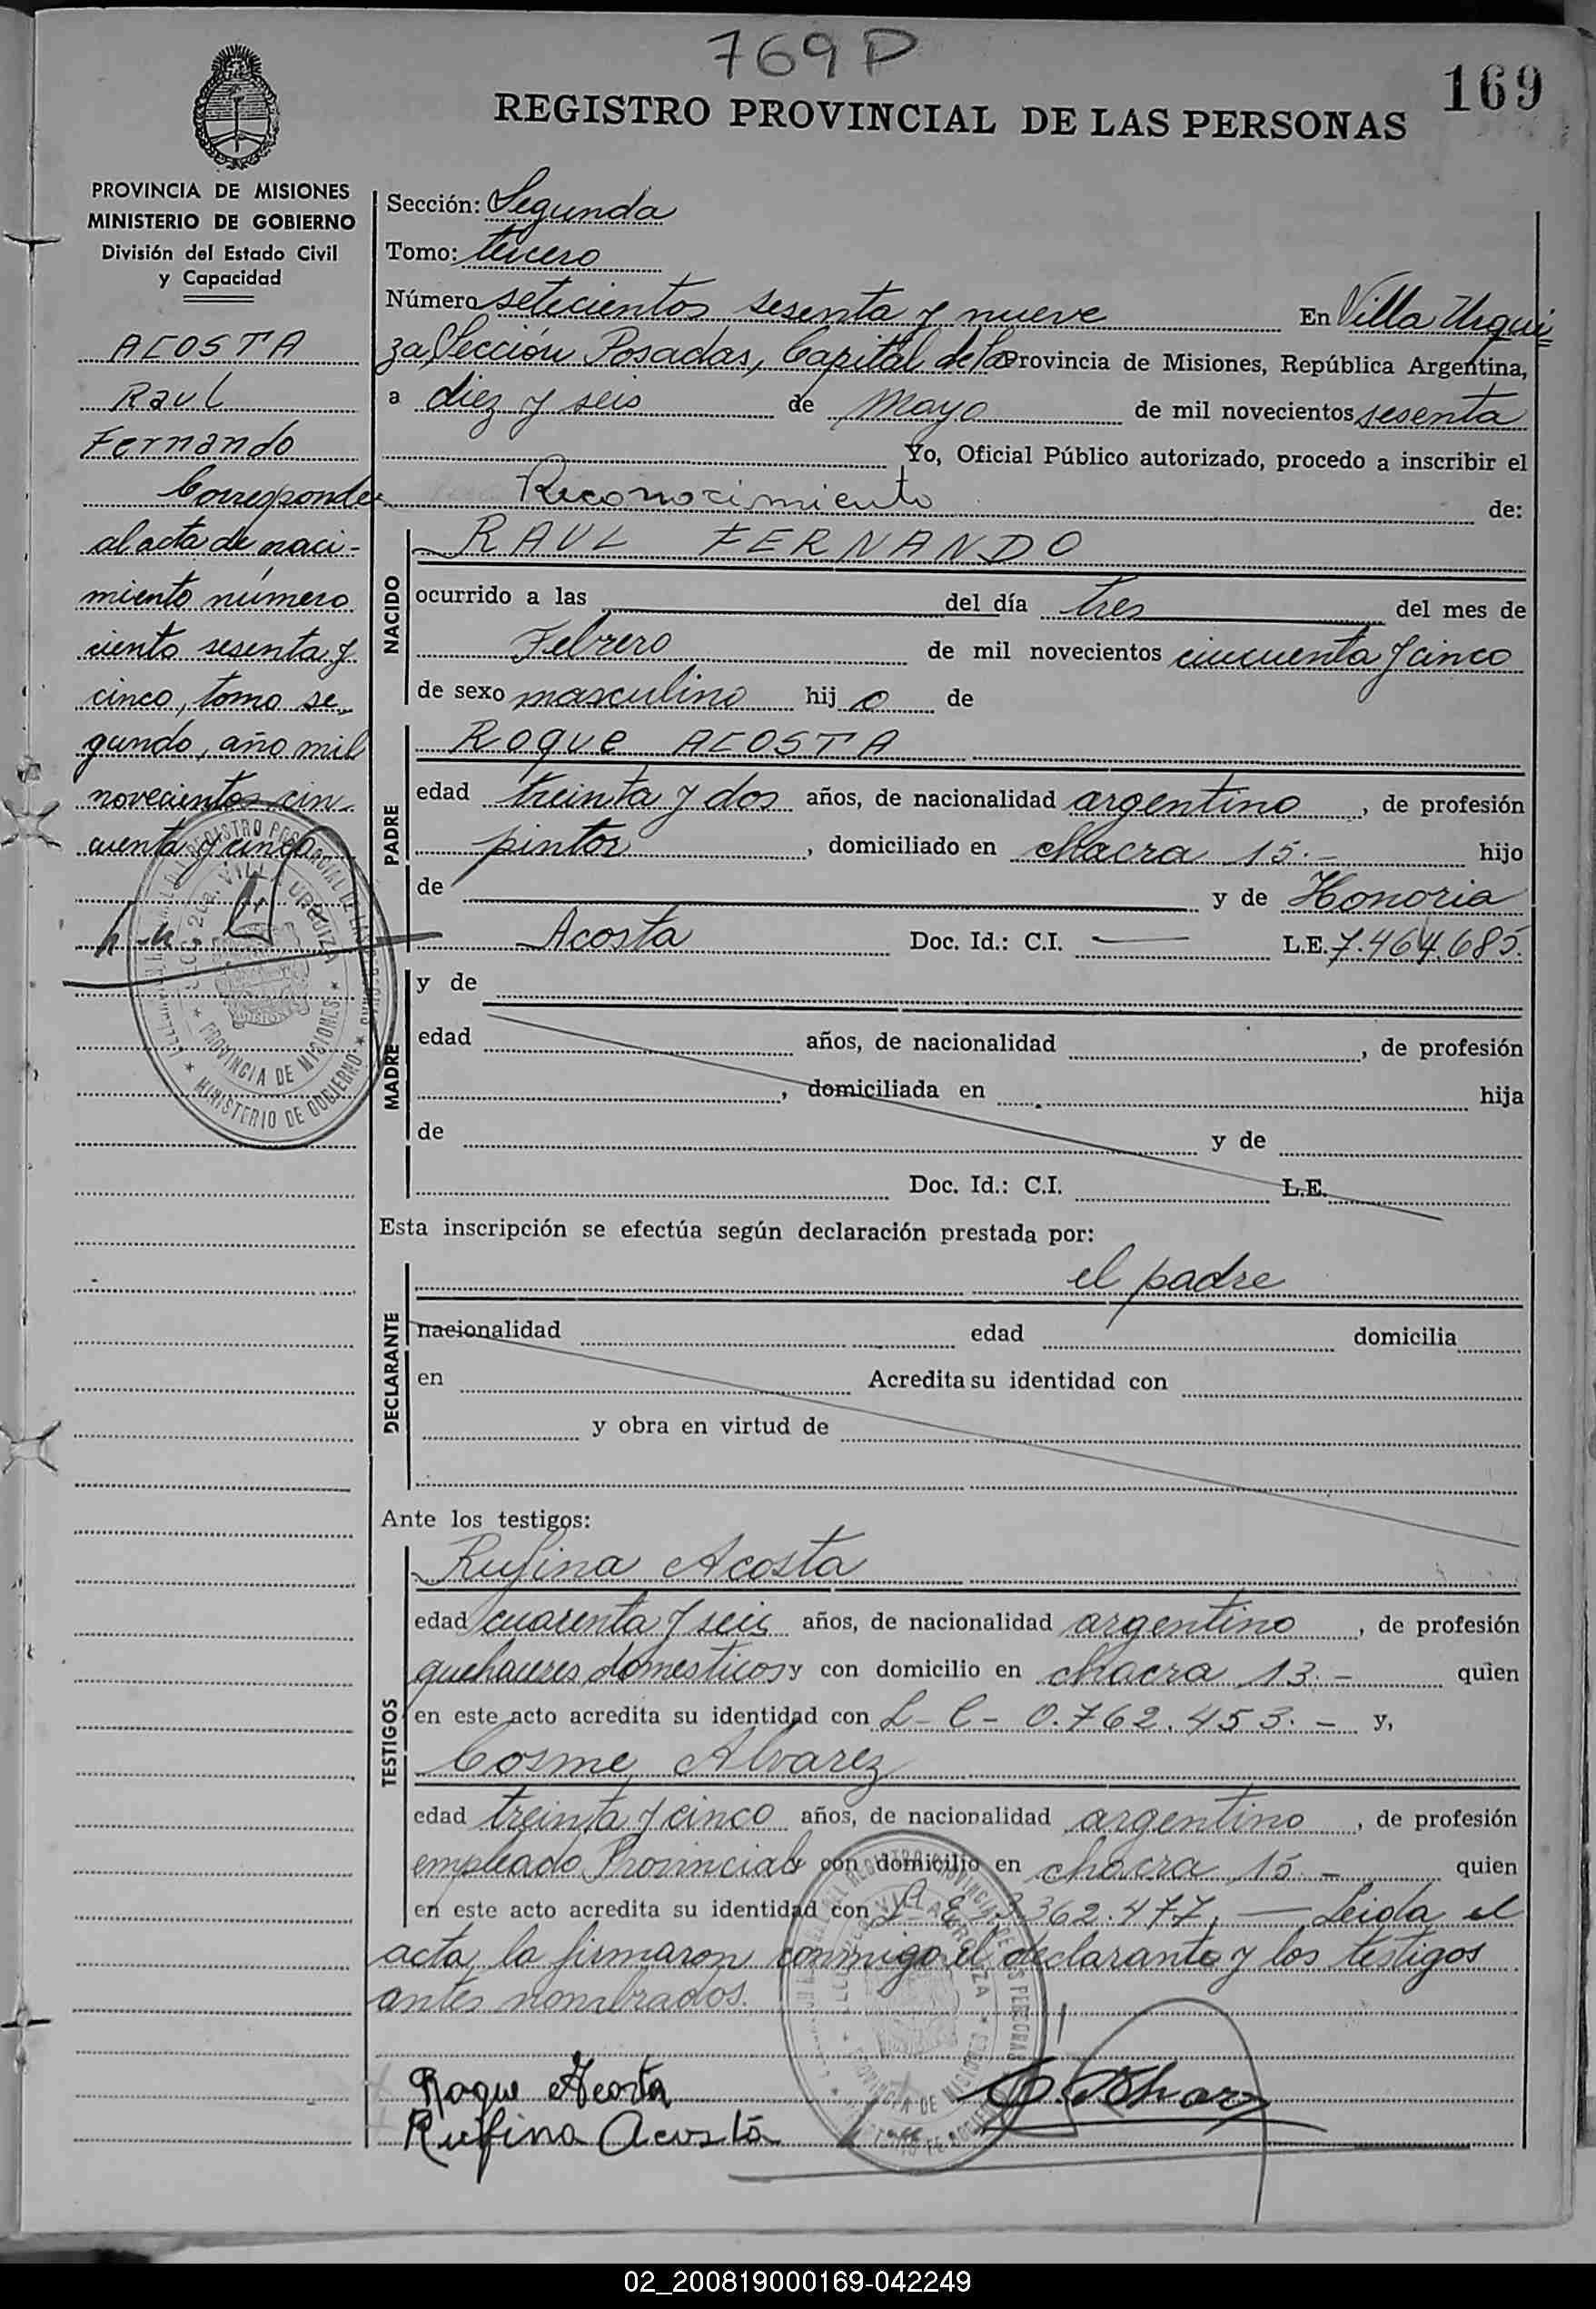 769 P
169
REGISTRO PROVINCIAL DE LAS PERSONAS
PROVINCIA DE MISIONES
MINISTERIO DE GOBIERNO
División del Estado Civil
y Capacidad
ACOSTA
Raul
Fernando
Corresponde
al acta de naci-
miento número
ciento sesenta y
cinco, tomo se-
gundo, año mil
novecientos cin-
cuenta y cinco
Sección: Segunda
Tomo: tercero
Número setecientos sesenta y nueve En Villa Urqui
za, Sección Posadas, Capital de la Provincia de Misiones, República Argentina,
a diez y seis de Mayo de mil novecientos sesenta
Yo, Oficial Público autorizado, procedo a inscribir el
Reconocimiento de:
NACIDO
RAUL FERNANDO
ocurrido a las del día tres del mes de
Febrero de mil novecientos cincuenta y cinco
de sexo masculino hijo de
PADRE
Roque ACOSTA
edad treinta y dos años, de nacionalidad argentino, de profesión
pintor, domiciliado en chacra 15.- hijo
de y de Honoria
Acosta Doc. Id.: C.I. — L.E. 7.464.685.
MADRE
y de
edad años, de nacionalidad , de profesión
, domiciliada en hija
de y de
Doc. Id.: C.I. L.E.
Esta inscripción se efectúa según declaración prestada por:
DECLARANTE
el padre
nacionalidad edad domicilia
en Acredita su identidad con
y obra en virtud de
Ante los testigos:
TESTIGOS
Rufina Acosta
edad cuarenta y seis años, de nacionalidad argentino, de profesión
quehaceres domesticos y con domicilio en chacra 13.- quien
en este acto acredita su identidad con L-C- 0.762.453.- y,
Cosme Alvarez
edad treinta y cinco años, de nacionalidad argentino, de profesión
empleado Provincial y con domicilio en chacra 15.- quien
en este acto acredita su identidad con L-E- 3.362.477.- Leida el
acta, la firmaron conmigo el declarante y los testigos
antes nombrados.
Roque Acosta
Rufina Acosta
VILLA URQUIZA
PROVINCIA DE MISIONES
MINISTERIO DE GOBIERNO
02_200819000169-042249